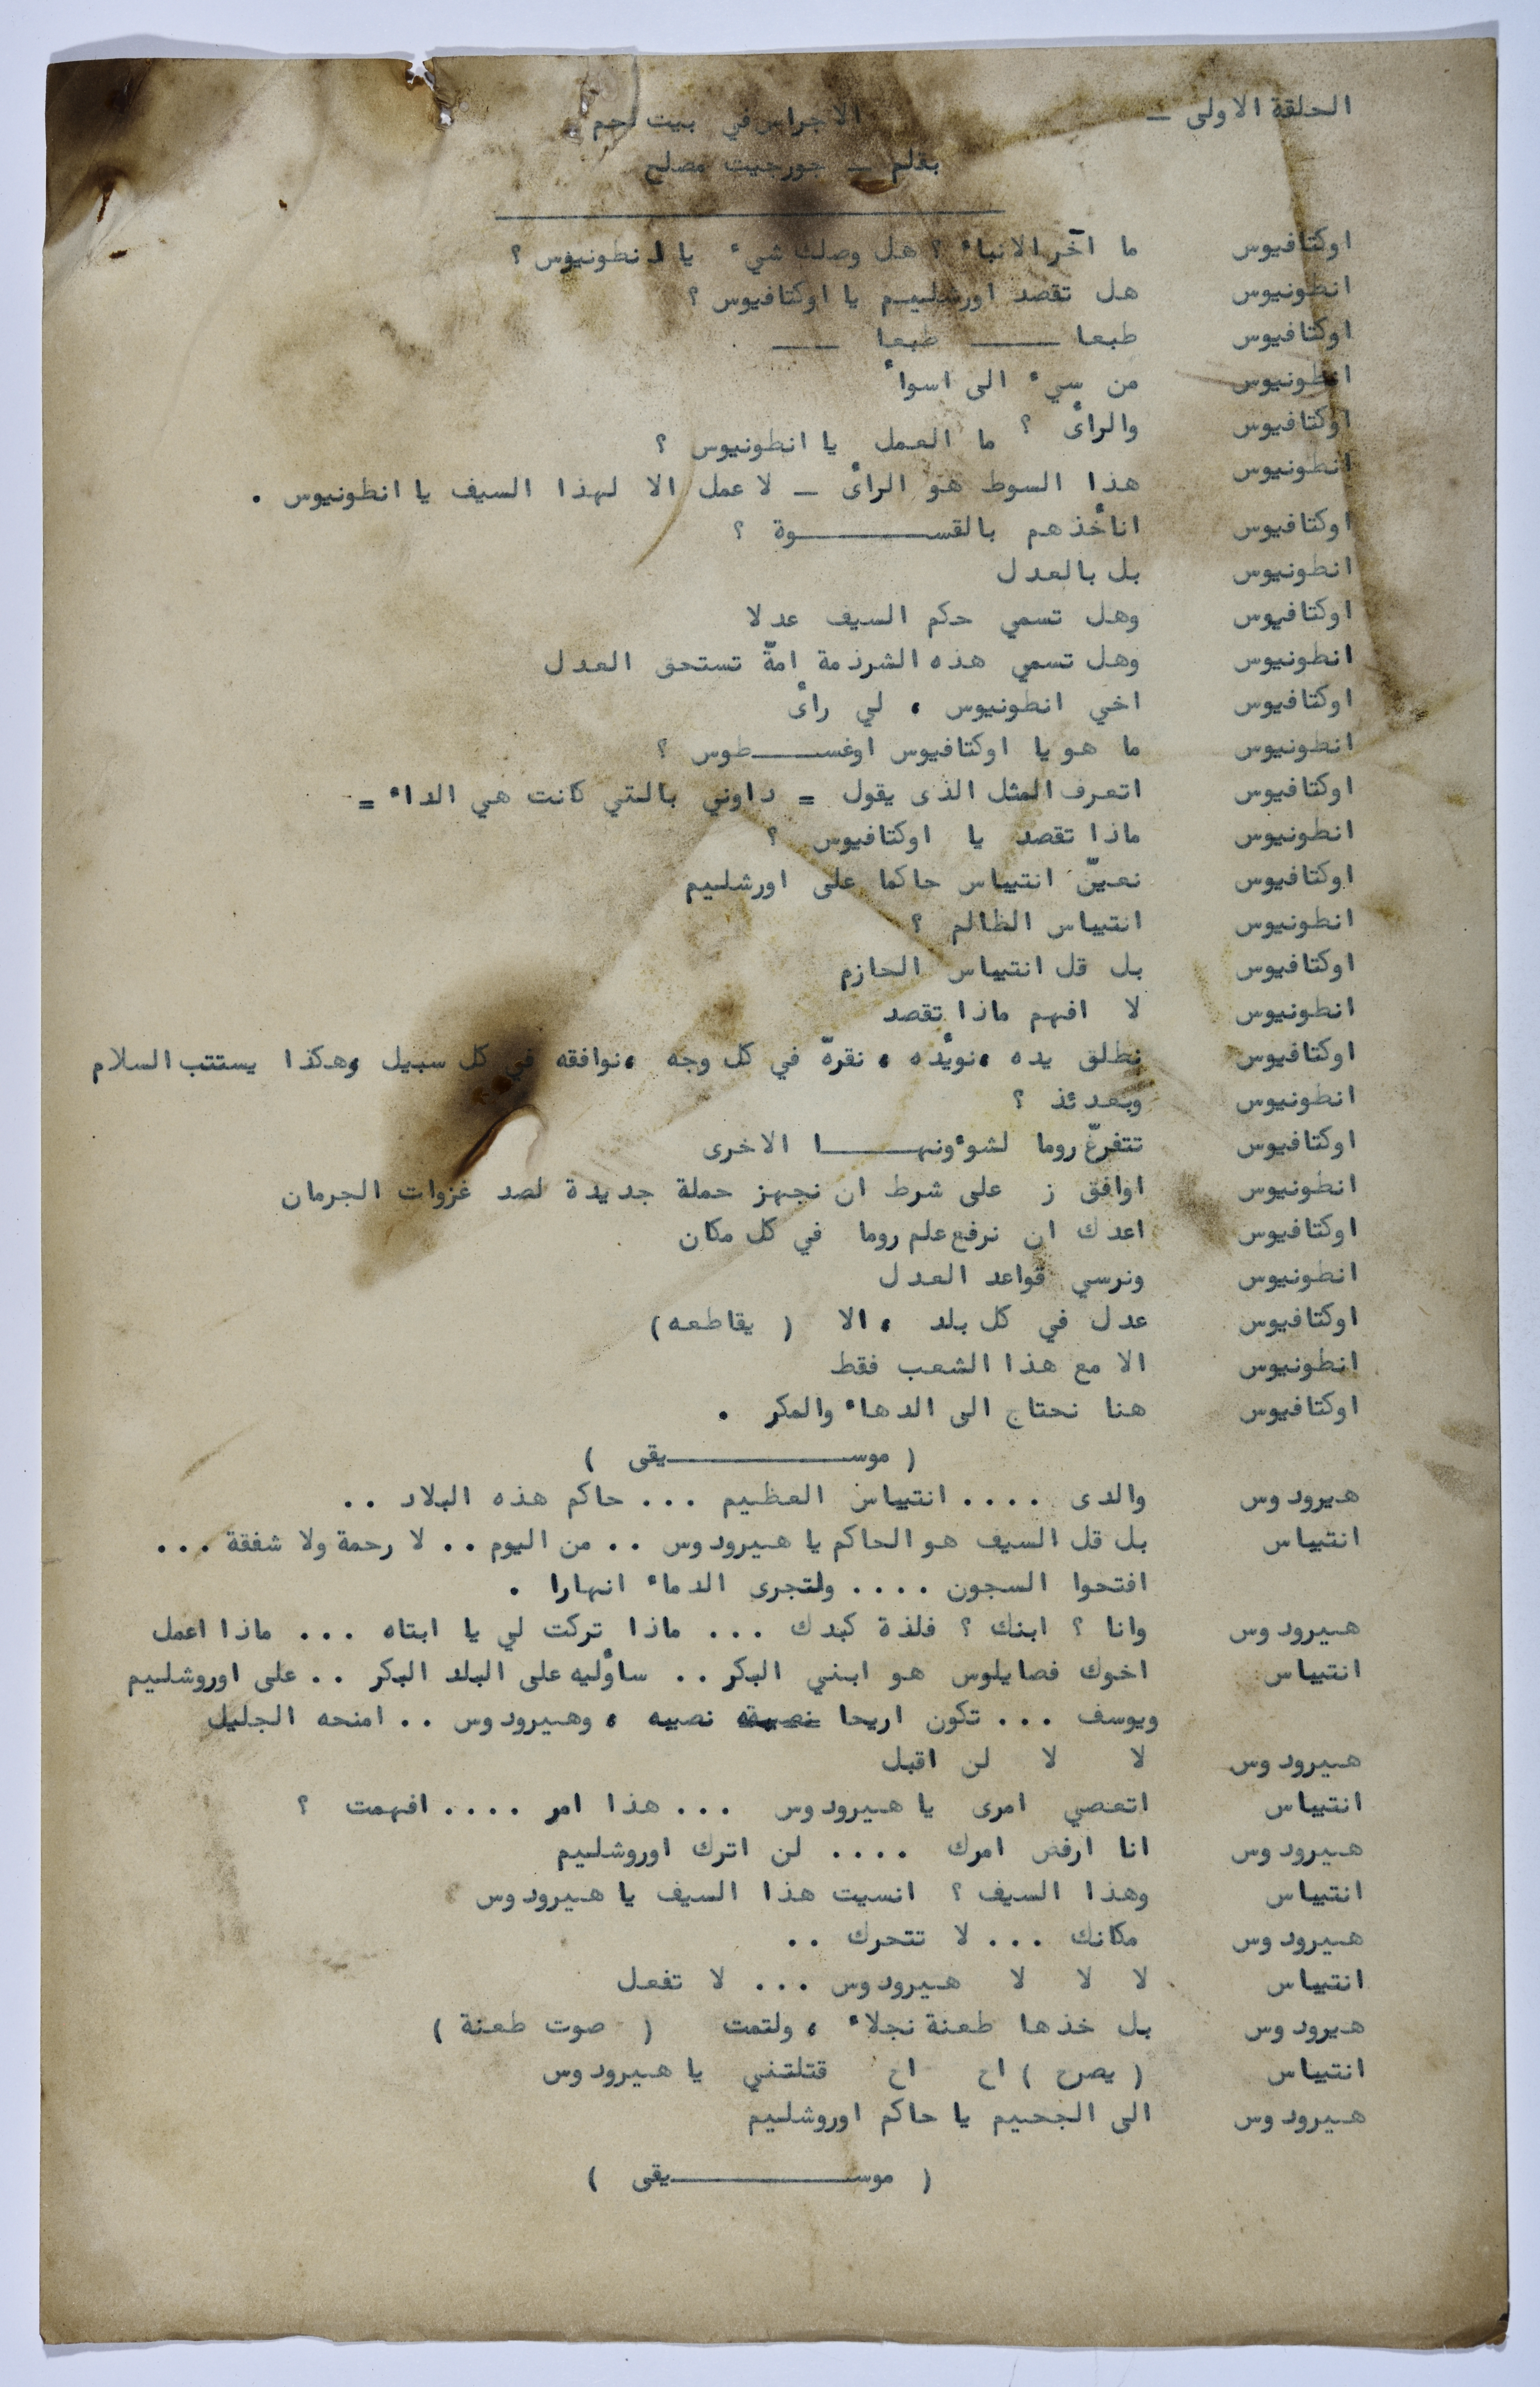 الحلقة الاولى — الاجراس في بيت لحم
بقلم — جورجيت مصلح
اوكتافيوس ما آخر الانباء ؟ هل وصلك شيء يا انطونيوس ؟
انطونيوس هل تقصد اورشليم يا اوكتافيوس ؟
اوكتافيوس طبعا ــــــ طبعا ــــــ
انطونيوس من سيء الى اسوأ
اوكتافيوس والرأى ؟ ما العمل يا انطونيوس ؟
انطونيوس هذا السوط هو الرأى — لا عمل الا لهذا السيف يا انطونيوس .
اوكتافيوس انأخذهم بالقســـــــــوة ؟
انطونيوس بل بالعدل
اوكتافيوس وهل تسمي حكم السيف عدلا
انطونيوس وهل تسمي هذه الشرذمة امّة تستحق العدل
اوكتافيوس اخي انطونيوس ، لي رأى
انطونيوس ما هو يا اوكتافيوس اوغســـــطوس ؟
اوكتافيوس اتعرف المثل الذى يقول = داوني بالتي كانت هي الداء =
انطونيوس ماذا تقصد يا اوكتافيوس ؟
اوكتافيوس نعيّن انتيباس حاكما على اورشليم
انطونيوس انتيباس الظالم ؟
اوكتافيوس بل قل انتيباس الحازم
انطونيوس لا افهم ماذا تقصد
اوكتافيوس نطلق يده ،نويّده ، نقرهّ في كل وجه ،نوافقه في كل سبيل ،وهكذا يستتب السلام
انطونيوس وبعدئذ ؟
اوكتافيوس تتفرغّ روما لشوءونهـــــــا الاخرى
انطونيوس اوافق ز على شرط ان نجهز حملة جديدة لصد غزوات الجرمان
اوكتافيوس اعدك ان نرفع علم روما في كل مكان
انطونيوس ونرسي قواعد العدل
اوكتافيوس عدل في كل بلد ، الا ( يقاطعه)
انطونيوس الا مع هذا الشعب فقط
اوكتافيوس هنا نحتاج الى الدهاء والمكر .
( موســـــــــيقى )
هيرودوس والدى .... انتيباس العظيم ... حاكم هذه البلاد ..
انتيباس بل قل السيف هو الحاكم يا هيرودوس .. من اليوم .. لا رحمة ولا شفقة ...
افتحوا السجون .... ولتجرى الدماء انهارا .
هيرودوس وانا ؟ ابنك ؟ فلذة كبدك ... ماذا تركت لي يا ابتاه ... ماذا اعمل
انتيباس اخوك فصايلوس هو ابني البكر .. سأوليه على البلد البكر .. على اوروشليم
ويوسف ... تكون اريحا نصيبه ، وهيرودوس .. امنحه الجليل
هيرودوس لا لا لن اقبل
انتيباس اتعصي امرى يا هيرودوس ... هذا امر .... افهمت ؟
هيرودوس انا ارفض امرك .... لن اترك اوروشليم
انتيباس وهذا السيف ؟ انسيت هذا السيف يا هيرودوس
هيرودوس مكانك ... لا تتحرك ..
انتيباس لا لا لا هيرودوس ... لا تفعل
هيرودوس بل خذها طعنة نجلاء ، ولتمت ( صوت طعنة )
انتيباس ( يصرخ ) اخ اخ قتلتني يا هيرودوس
هيرودوس الى الجحيم يا حاكم اوروشليم
( موســـــــــيقى )